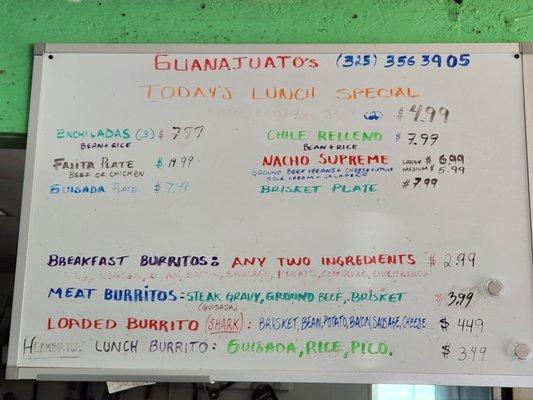 GUANAJUATO'S (325) 356 3905
TODAY'S LUNCH SPECIAL
(2) $4.99
ENCHILADAS (3) $7.99
BEAN+RICE
CHILE RELLENO $7.99
BEAN+RICE
FAJITA PLATE $14.99
BEEF OR CHICKEN
NACHO SUPREME LARGE $6.99
GROUND BEEF+BEANS+CHEESE+LETTUCE MEDIUM $5.99
SOUR CREAM+JALAPENO
GUISADA PLATE $7.99
BRISKET PLATE $7.99
BREAKFAST BURRITOS: ANY TWO INGREDIENTS $2.99
BEAN, BACON, SAUSAGE, POTATO, CHORIZO, CHICHARRON
MEAT BURRITOS: STEAK GRAVY, GROUND BEEF, BRISKET $3.99
(GUISADA)
LOADED BURRITO (SHARK): BRISKET, BEAN, POTATO, BACON, SAUSAGE, CHEESE $4.49
LUNCH BURRITO: GUISADA, RICE, PICO. $3.49